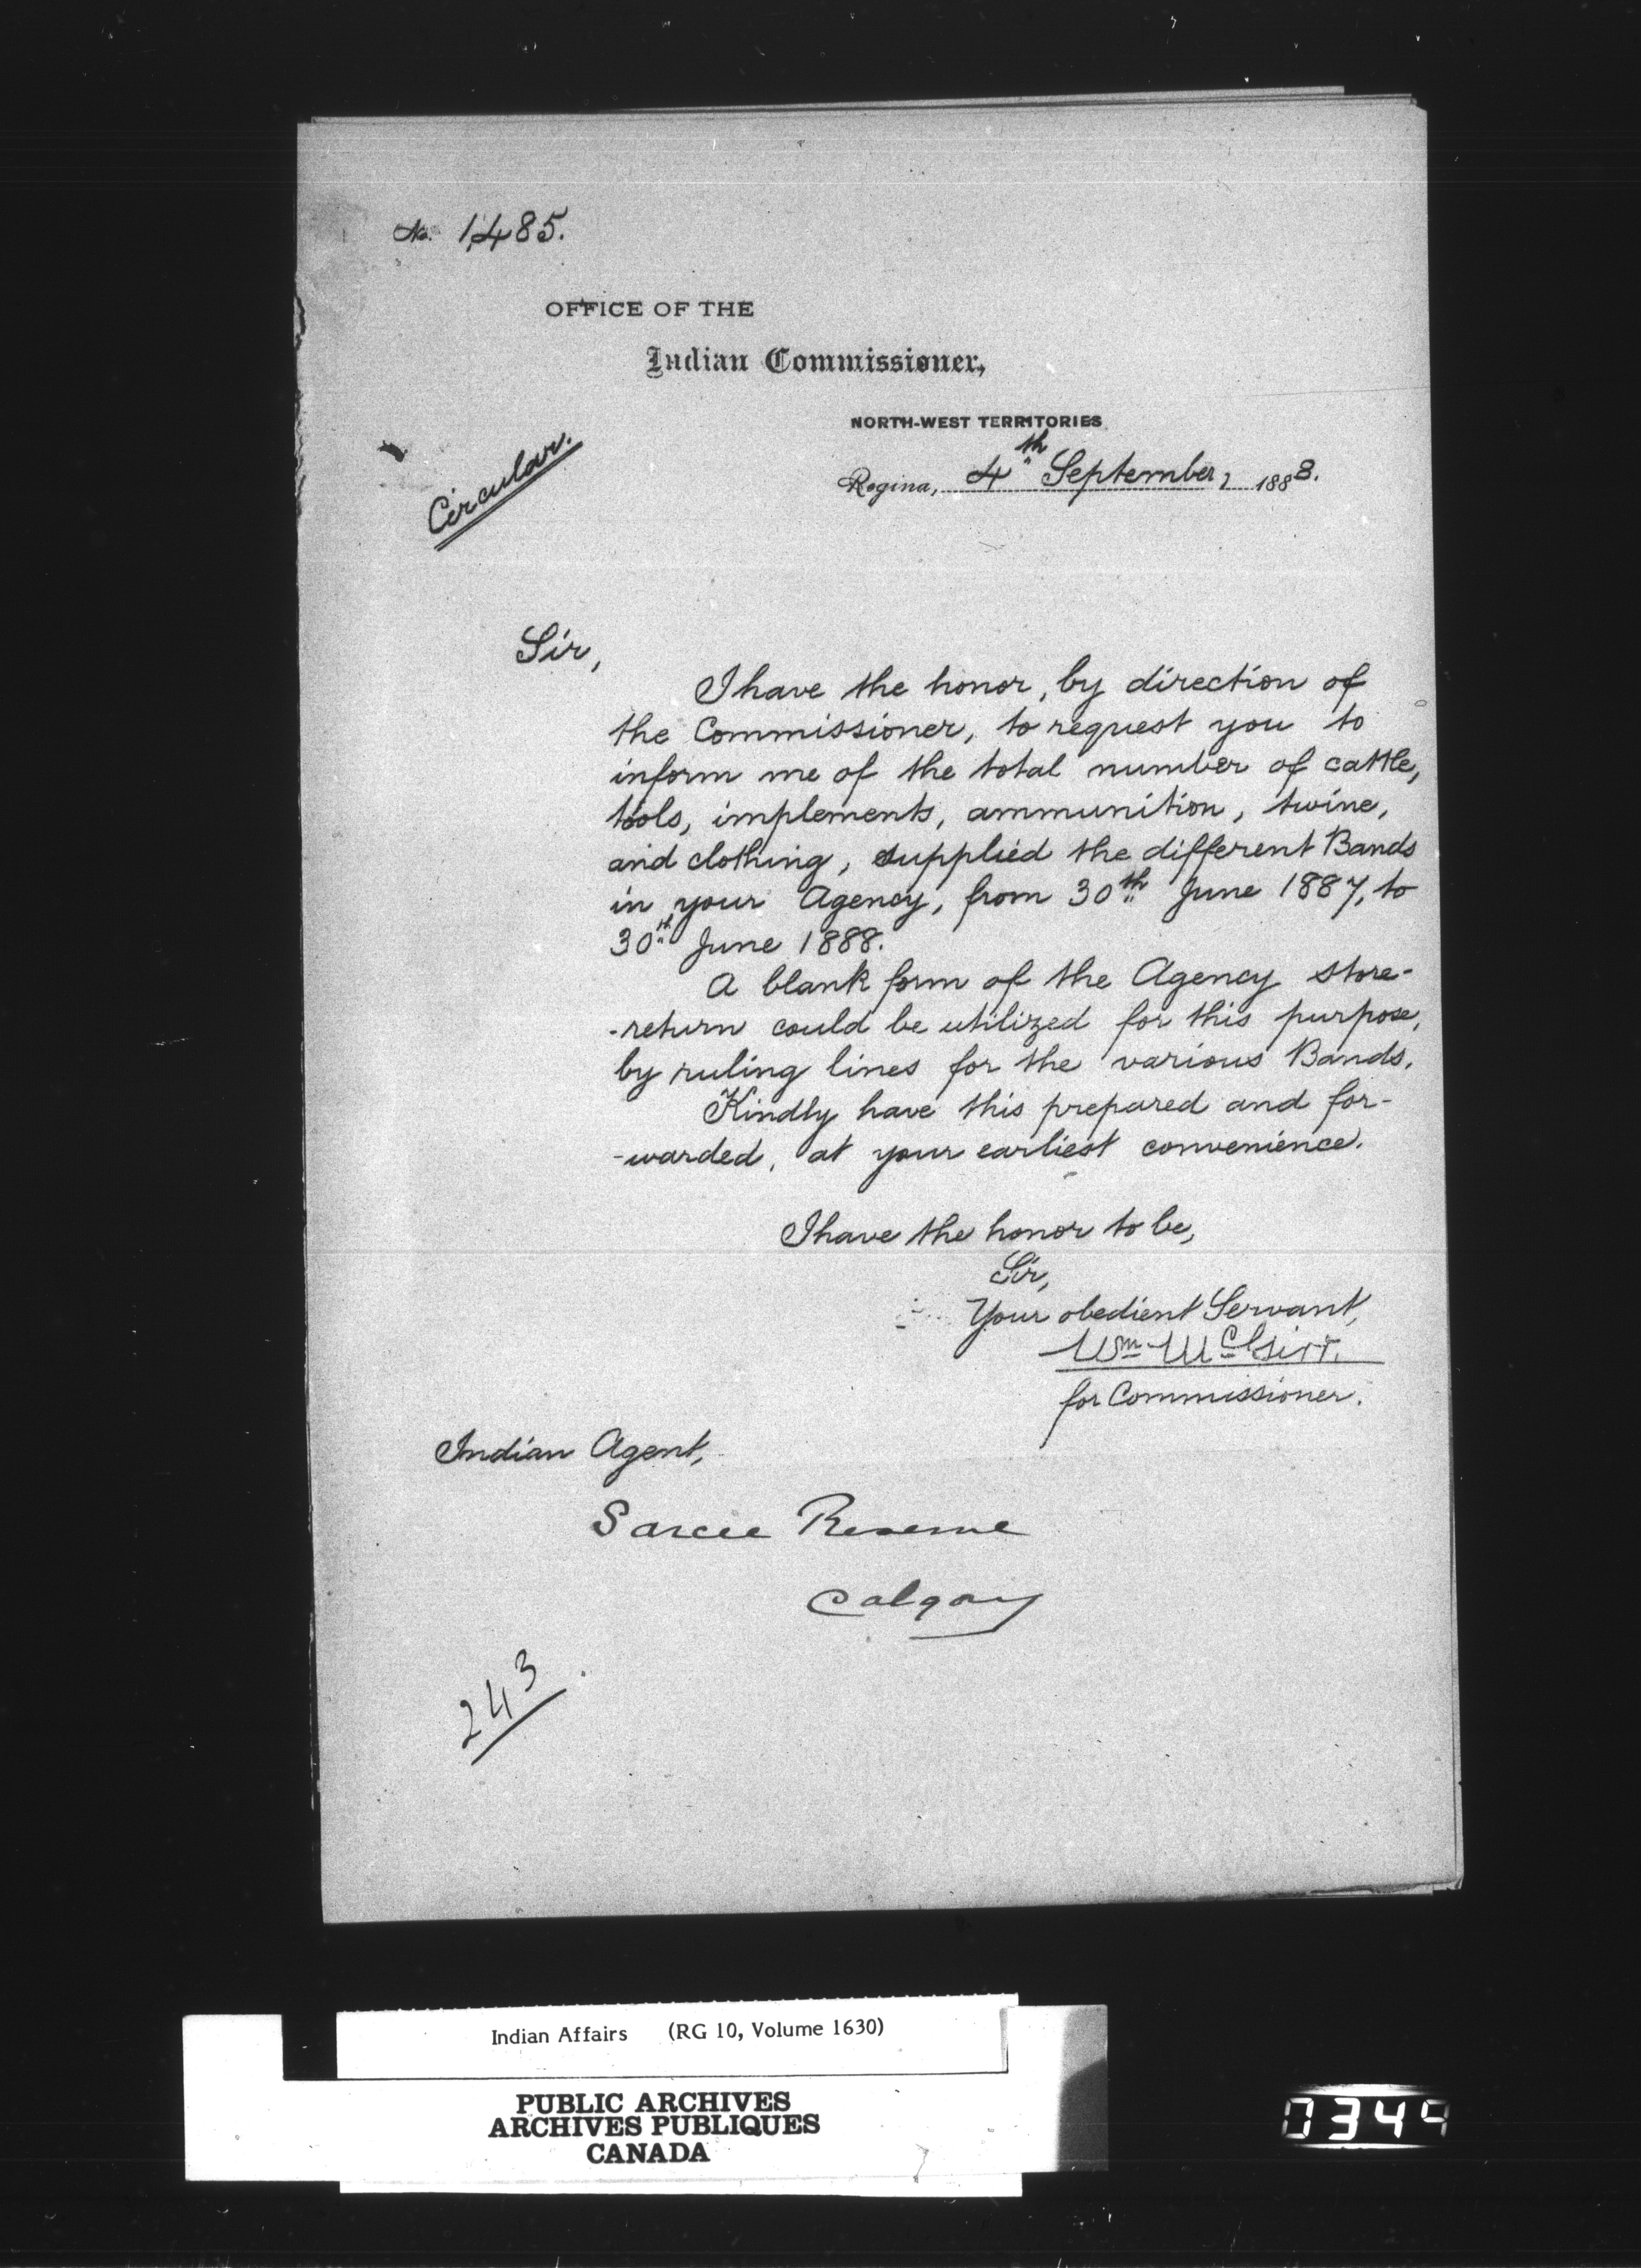 No. 1485.
OFFICE OF THE
Indian Commissioner,
NORTH-WEST TERRITORIES
Circular.
Regina, 4th September, 1888.
Sir,
I have the honor, by direction of
the Commissioner, to request you to
inform me of the total number of cattle,
tools, implements, ammunition, twine,
and clothing, supplied the different Bands
in your Agency, from 30th June 1887, to
30th June 1888.
A blank form of the Agency store-
-return could be utilized for this purpose,
by ruling lines for the various Bands.
Kindly have this prepared and for-
-warded, at your earliest convenience.
I have the honor to be,
Sir,
Your obedient Servant,
Wm McGirr.
for Commissioner.
Indian Agent,
Sarcee Reserve
Calgary
243
Indian Affairs (RG 10, Volume 1630)
PUBLIC ARCHIVES
ARCHIVES PUBLIQUES
CANADA
0349